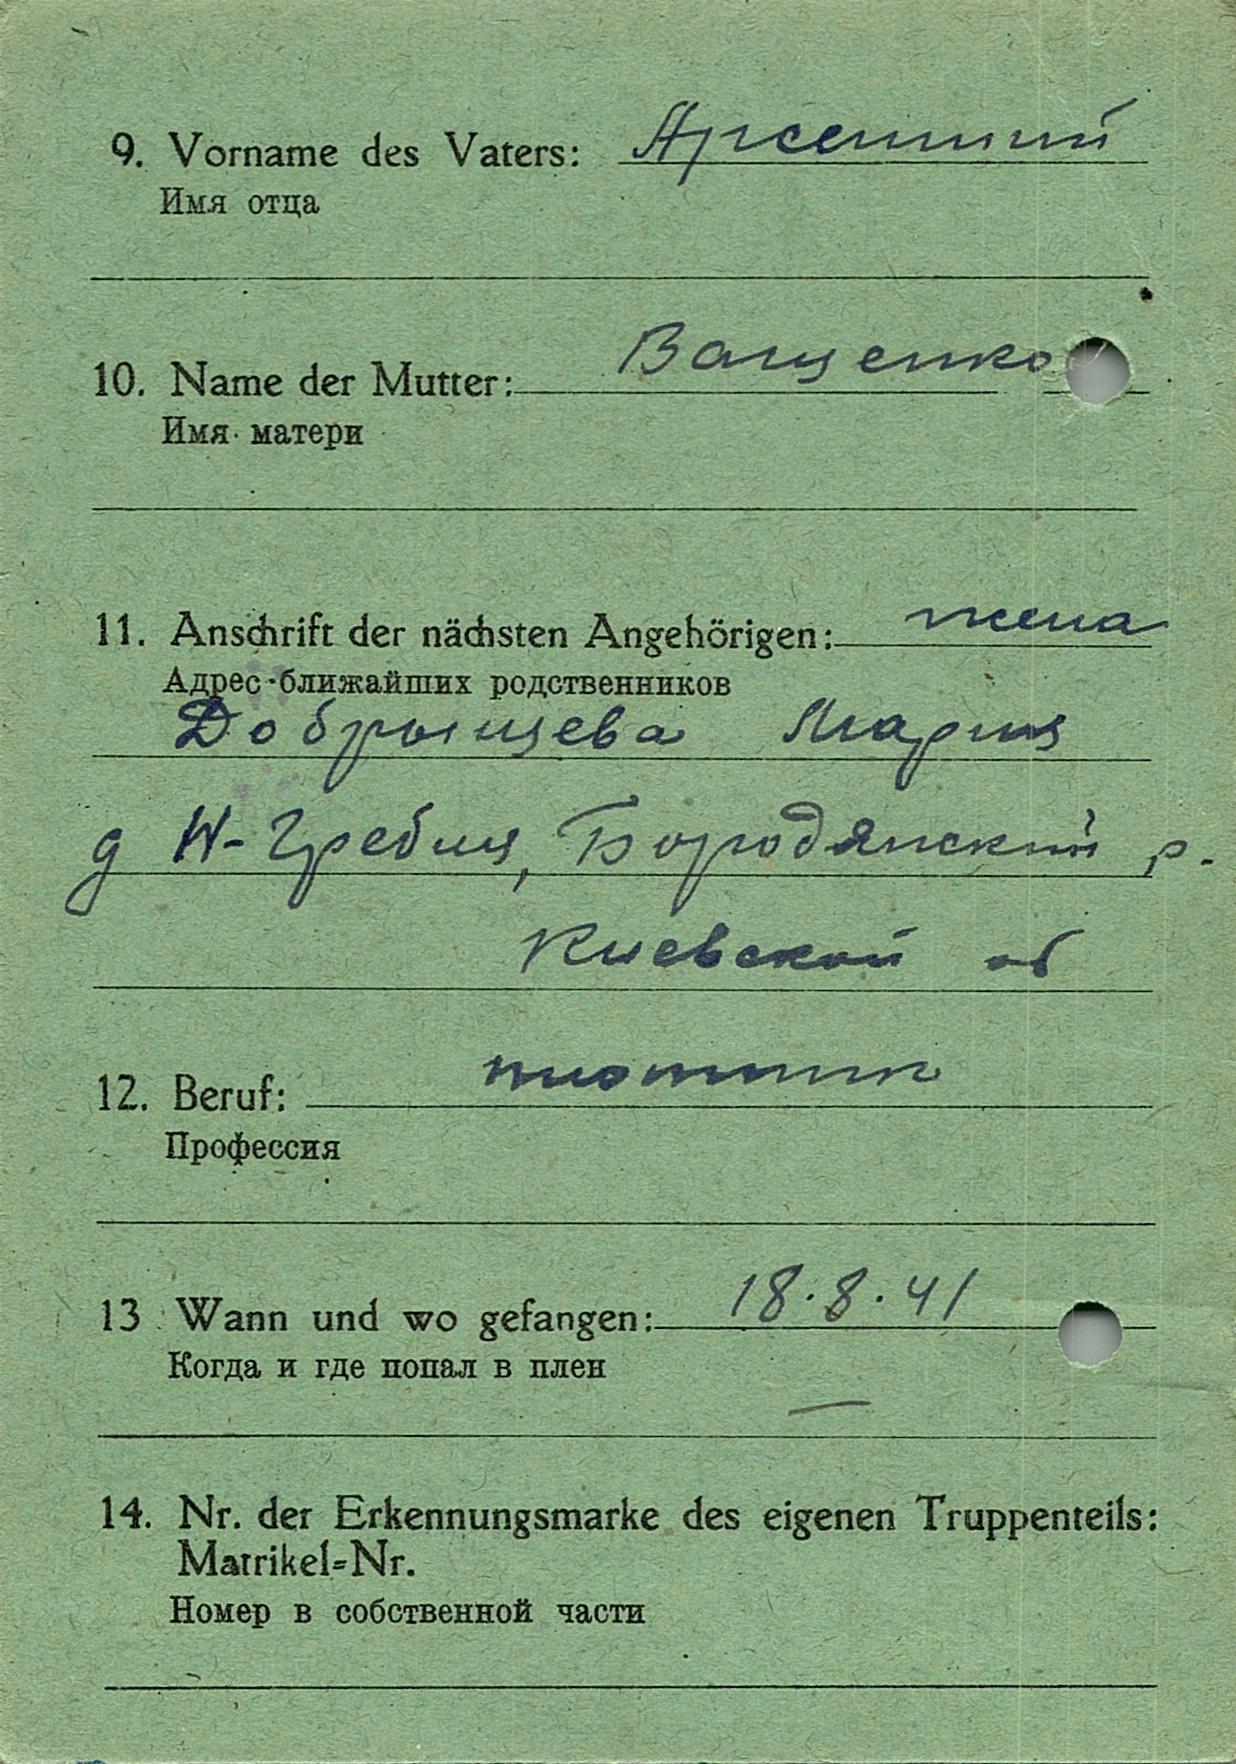 9. Vorname des Vaters: Арсенний
Имя отца
10. Name der Mutter: Ващенко
Имя матери
11. Anschrift der nächsten Angehörigen: жена
Адрес ближайших родственников
Добрынцева Мария
д Н-Гребля, Бородянский р.
Киевской об
12. Beruf: плотник
Профессия
13 Wann und wo gefangen: 18.8.41
Когда и где попал в плен
—
14. Nr. der Erkennungsmarke des eigenen Truppenteils:
Matrikel=Nr.
Номер в собственной части